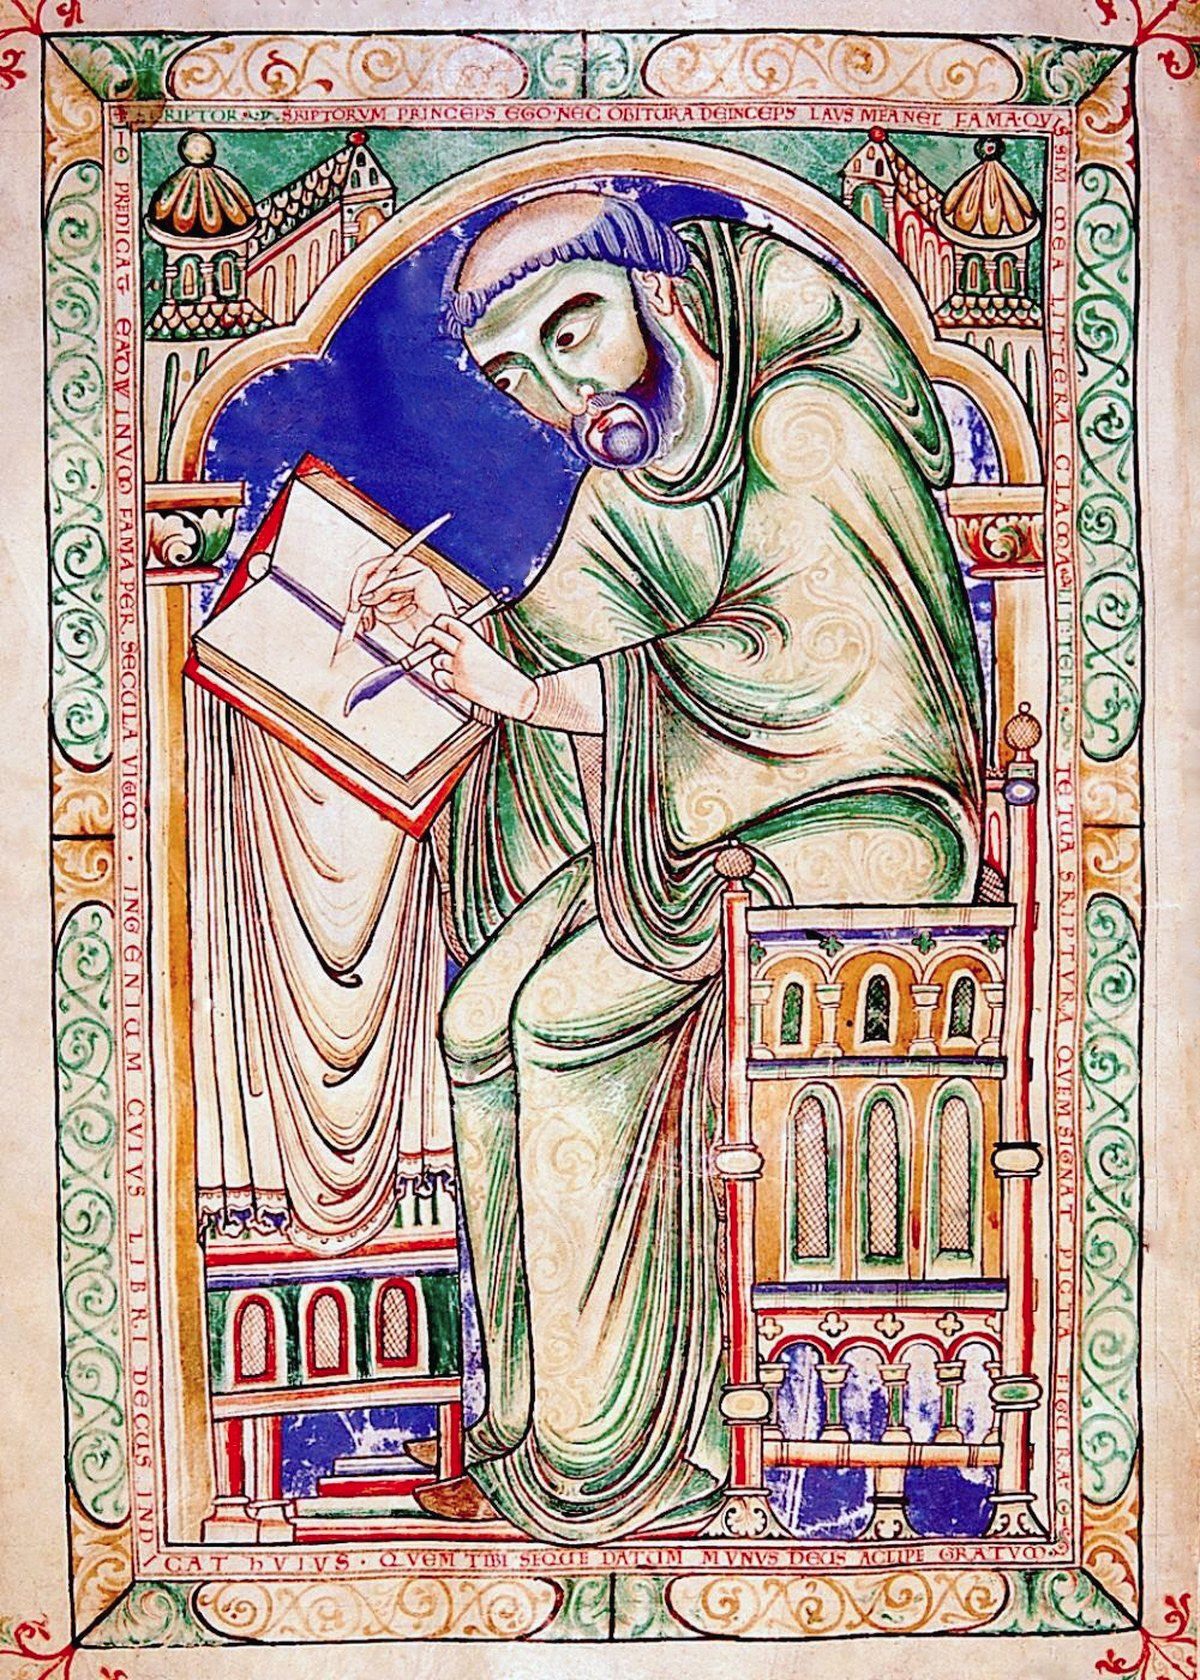 SCRIPTOR SRIPTORVM PRINCEPS EGO·NEC OBITURA DEINCEPS LAVS MEA NEC FAMA·QVI
S SIM MEA LITTERA CLAMA· LITTERA· TE TUA SRIPTVRA QVEM SIGNAT PICTA FIGURA·
PREDICAT EADWINVM FAMA PER SECULA VIVVM · INGENIUM CVIVS LIBRI DECUS INDI
CAT HVIVS · QVEM TIBI SEQUE DATUM MVNVS DEUS ACCIPE GRATVM